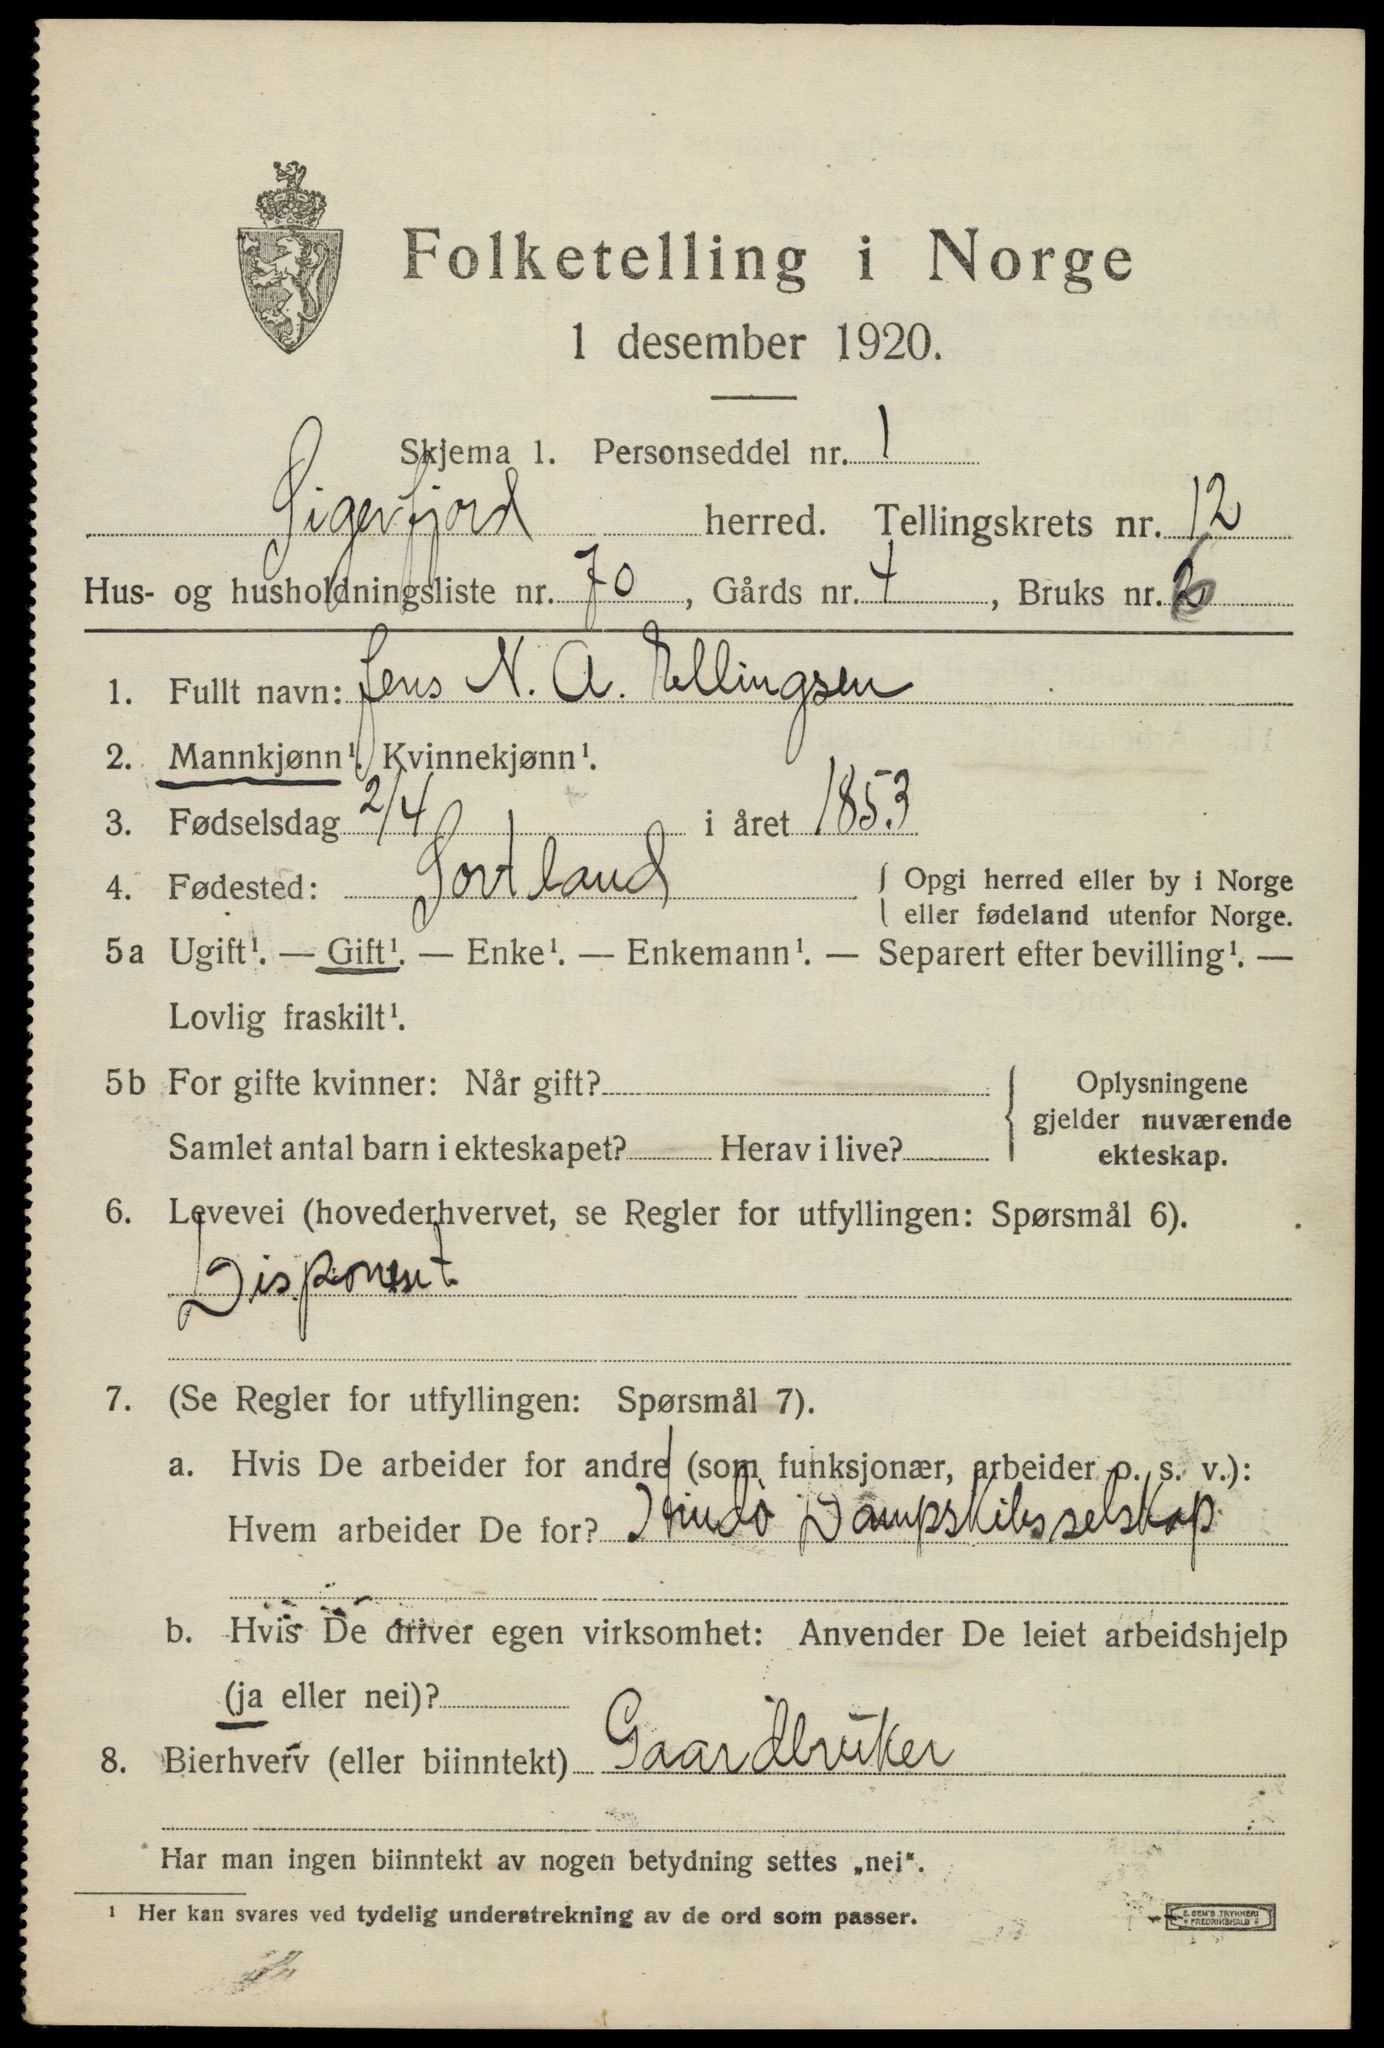 Folketelling i Norge
1 desember 1920.
Skjema 1. Personseddel nr. 1
Sigerfjord herred. Tellingskrets nr. 12
Hus- og husholdningsliste nr. 70, Gårds nr. 4, Bruks nr.
1. Fullt navn: Jens N. A. Ellingsen
2. Mannkjønn¹. Kvinnekjønn¹.
3. Fødselsdag 2/4 i året 1853
4. Fødested: Sortland { Opgi herred eller by i Norge
eller fødeland utenfor Norge.
5a Ugift¹. — Gift¹. — Enke¹. — Enkemann¹. — Separert efter bevilling¹. —
Lovlig fraskilt¹.
5b For gifte kvinner: Når gift? { Oplysningene
gjelder nuværende
Samlet antal barn i ekteskapet? Herav i live? ekteskap.
6. Levevei (hovederhvervet, se Regler for utfyllingen: Spørsmål 6).
Disponent
7. (Se Regler for utfyllingen: Spørsmål 7).
a. Hvis De arbeider for andre (som funksjonær, arbeider o. s. v.):
Hvem arbeider De for? Hindø Dampskibsselskap
b. Hvis De driver egen virksomhet: Anvender De leiet arbeidshjelp
(ja eller nei)?
8. Bierhverv (eller biinntekt) Gaardbruker
Har man ingen biinntekt av nogen betydning settes „nei".
¹ Her kan svares ved tydelig understrekning av de ord som passer.
E. SEM'S TRYKKERI
FREDRIKSHALD